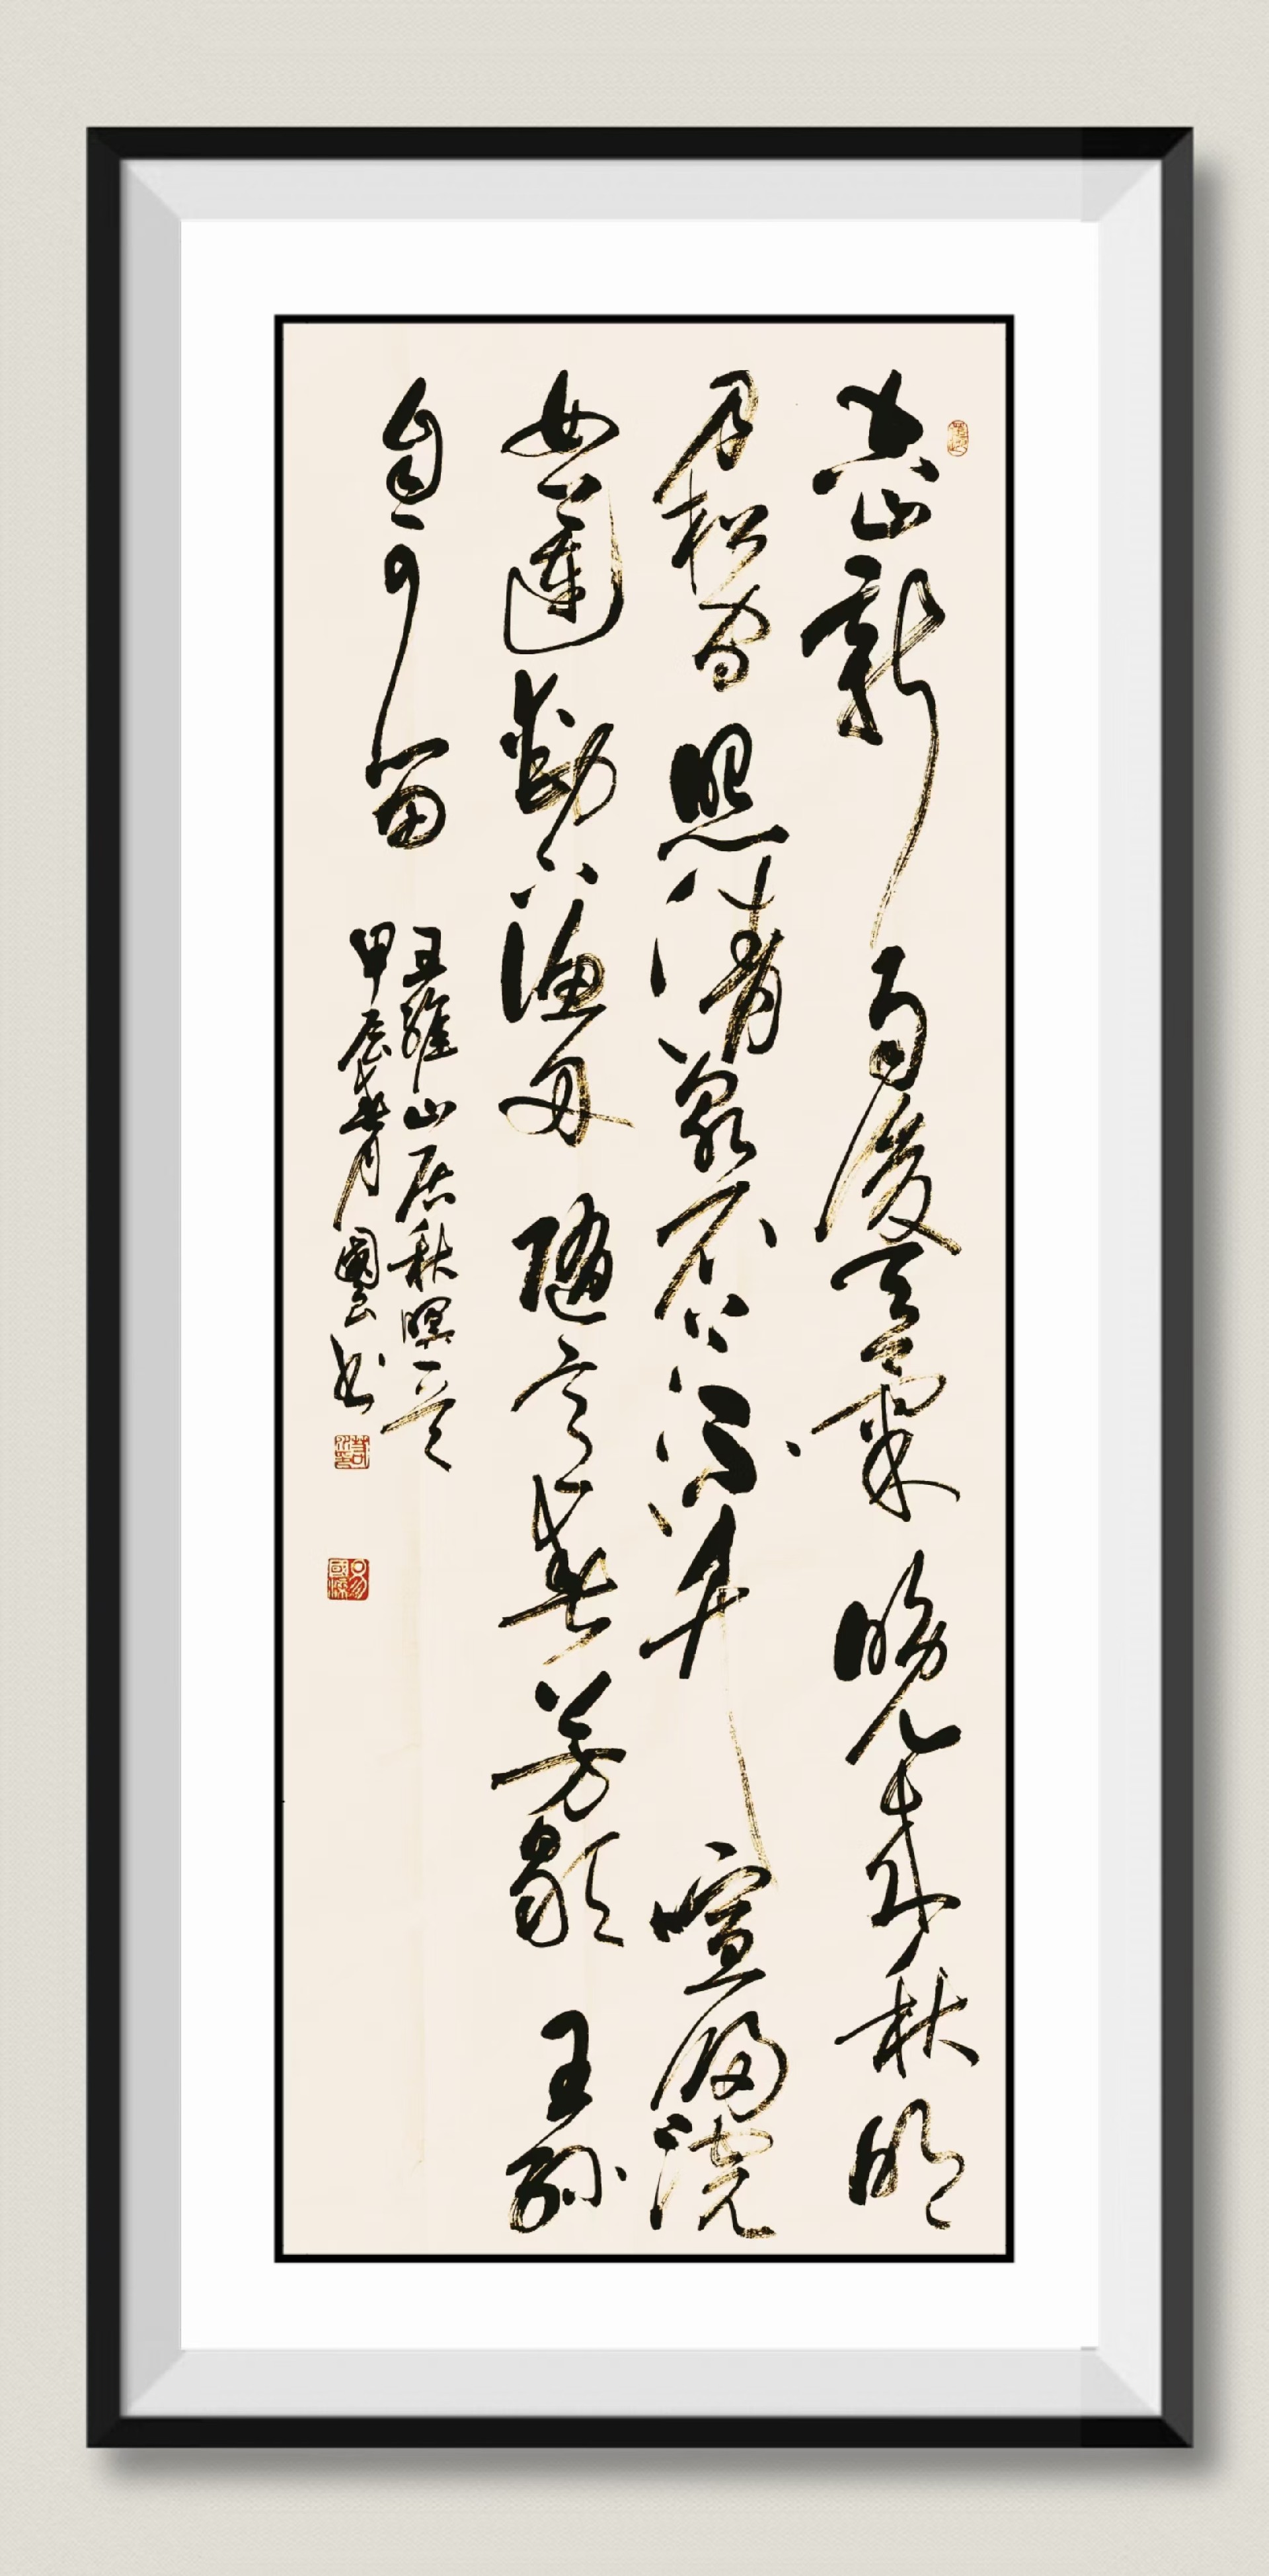 空山新雨後天氣晚來秋明
月松間照清泉石上流竹喧歸浣
女蓮動下漁舟隨意春芳歇王孫
自可留
王維山居秋暝一首
甲辰春月國書